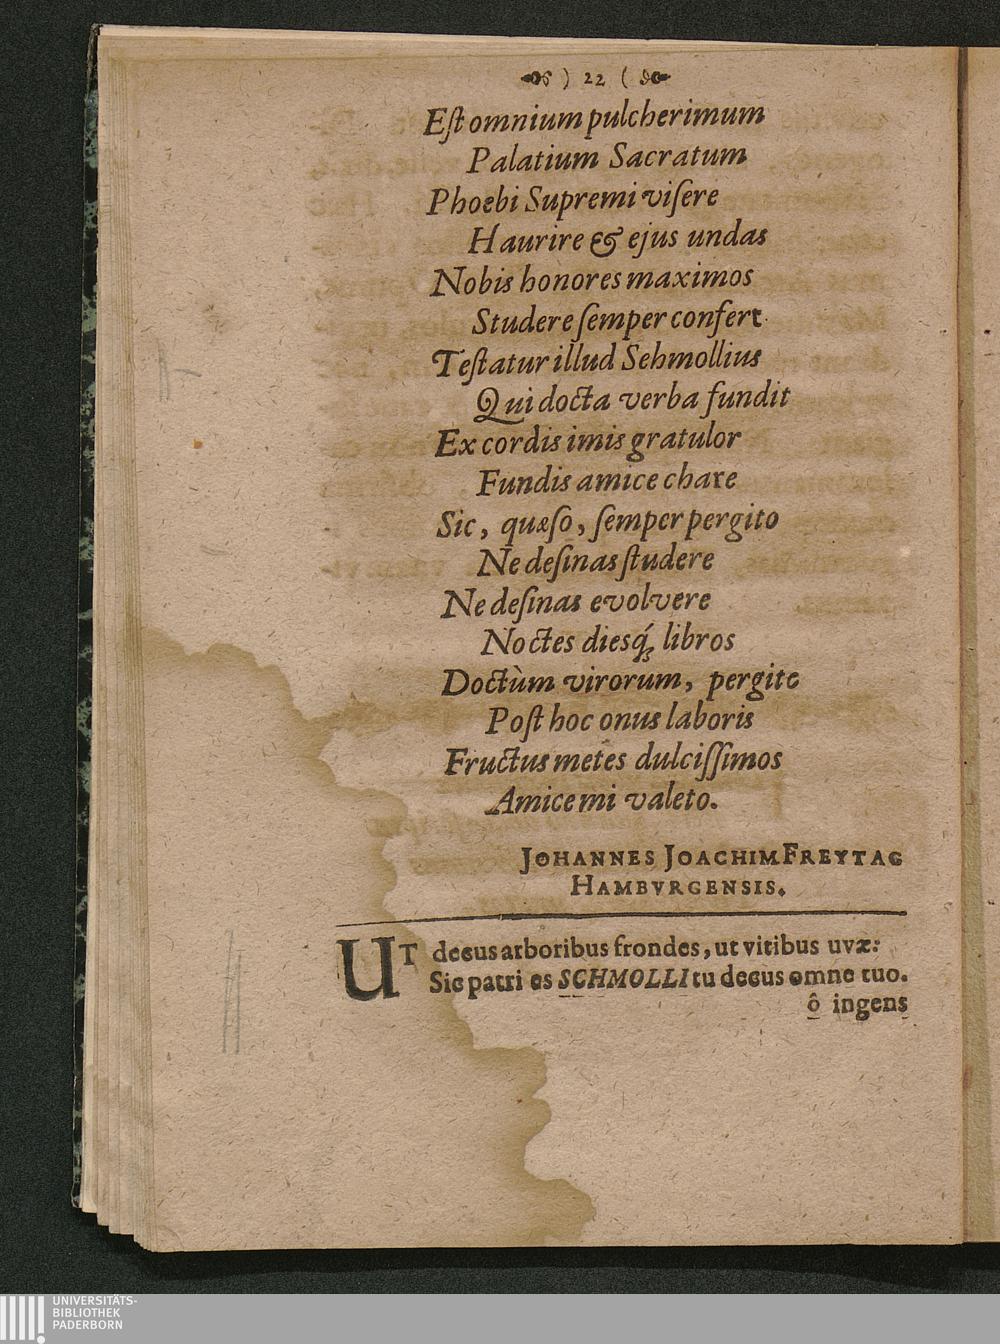 ) 22 (
Eſt omnium pulcherimum
Palatium Sacratum
Phoebi Supremi viſere
Haurire & ejus undas
Nobis honores maximos
Studere ſemper confert
Teſtatur illud Sehmollius
Qui docta verba fundit
Ex cordis imis gratulor
Fundis amice chare
Sic, quæſo, ſemper pergito
Ne deſinas ſtudere
Ne deſinas evolvere
Noctes diesq́; libros
Doctùm virorum, pergito
Poſt hoc onus laboris
Fructus metes dulciſſimos
Amice mi valeto.
JOHANNES JOACHIM FREYTAG
HAMBVRGENSIS.
UT decus arboribus frondes, ut vitibus uvæ:
Sic patri es SCHMOLLI tu decus omne tuo.
ô ingens
UNIVERSITÄTS-
BIBLIOTHEK
PADERBORN